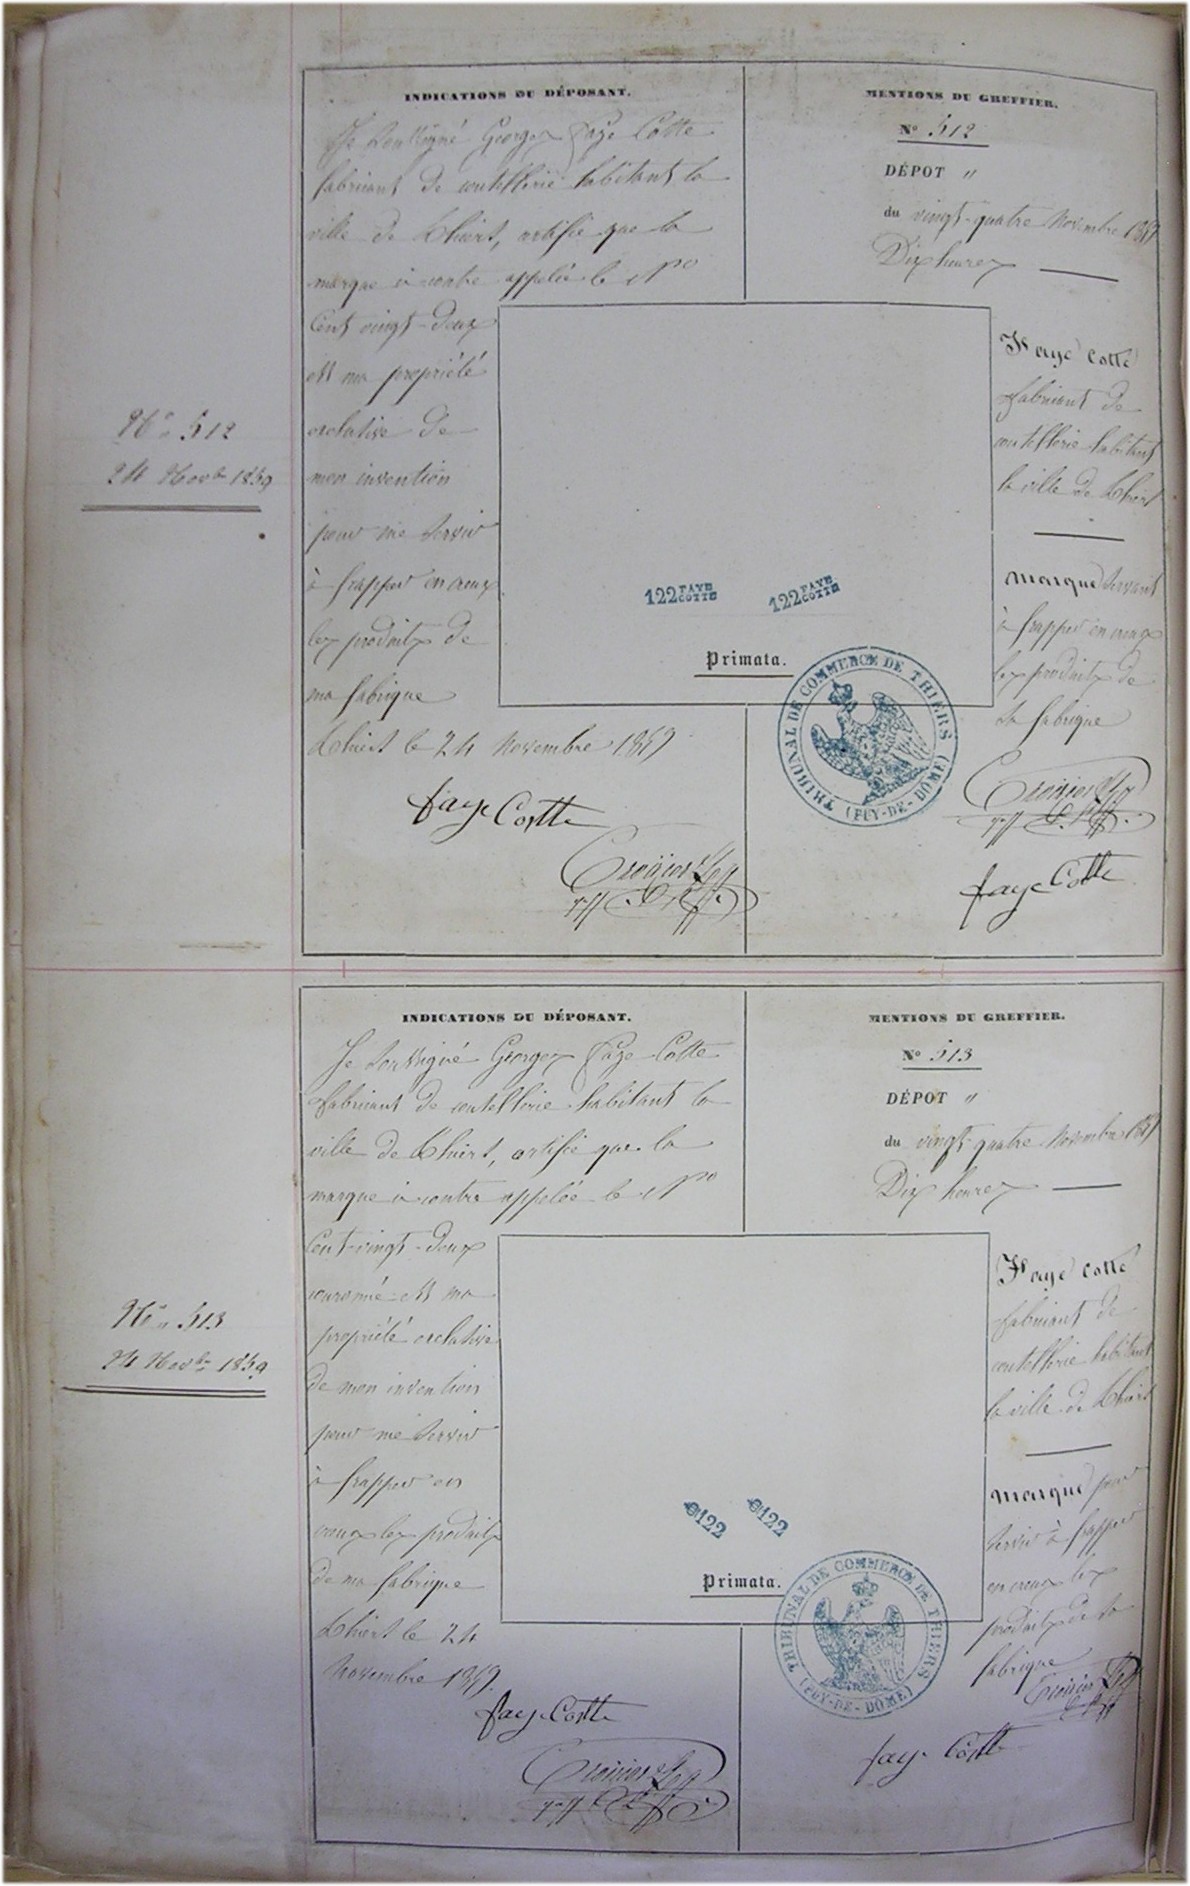 INDICATIONS DU DÉPOSANT.
Je soussigné Georges Faye Cotte
fabricant de coutellerie habitant la
ville de Thiers, certifie que la
marque ci contre appelée le No
Cent vingt-deux
est ma propriété
exclusive de
mon invention
pour me servir
à frapper en creux
les produits de
ma fabrique
Thiers le 24 Novembre 1859
Faye Cotte
MENTIONS DU GREFFIER.
No 512
DÉPOT "
du vingt-quatre Novembre 1859
Dix heures
Faye Cotte
fabricant de
coutellerie habitant
la ville de Thiers
Marque servant
à frapper en creux
les produits de
sa fabrique
Faye Cotte
No 512
24 Novbre 1859
122 FAYE COTTE
122 FAYE COTTE
Primata.
TRIBUNAL DE COMMERCE DE THIERS
(PUY-DE-DÔME)
INDICATIONS DU DÉPOSANT.
Je soussigné Georges Faye Cotte
fabricant de coutellerie habitant la
ville de Thiers, certifie que la
marque ci contre appelée le No
Cent-vingt-deux
couronné est ma
propriété exclusive
de mon invention
pour me servir
à frapper en
creux les produits
de ma fabrique
Thiers le 24
Novembre 1859.
Faye Cotte
MENTIONS DU GREFFIER.
No 513
DÉPOT "
du vingt-quatre Novembre 1859
Dix heures
Faye Cotte
fabricant de
coutellerie habitant
la ville de Thiers
Marque pour
servir à frapper
en creux les
produits de sa
fabrique
Faye Cotte
No 513
24 Novbre 1859
122
122
Primata.
TRIBUNAL DE COMMERCE DE THIERS
(PUY-DE-DÔME)